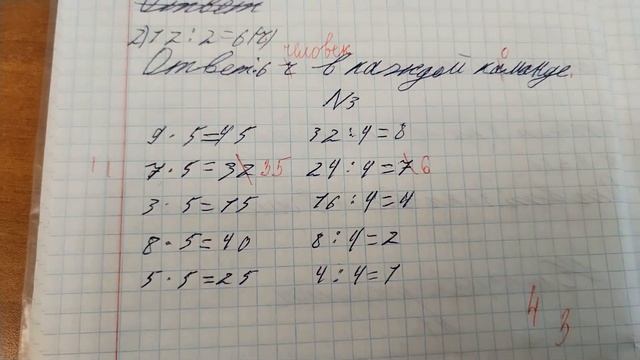 Ответ
2) 12 : 2 = 6 (ч)
человек
Ответ: 6 ч в каждой команде.
о
N3
9 · 5 = 45 32 : 4 = 8
7 · 5 = 32 35 24 : 4 = 7 6
3 · 5 = 15 16 : 4 = 4
8 · 5 = 40 8 : 4 = 2
5 · 5 = 25 4 : 4 = 1
4
3